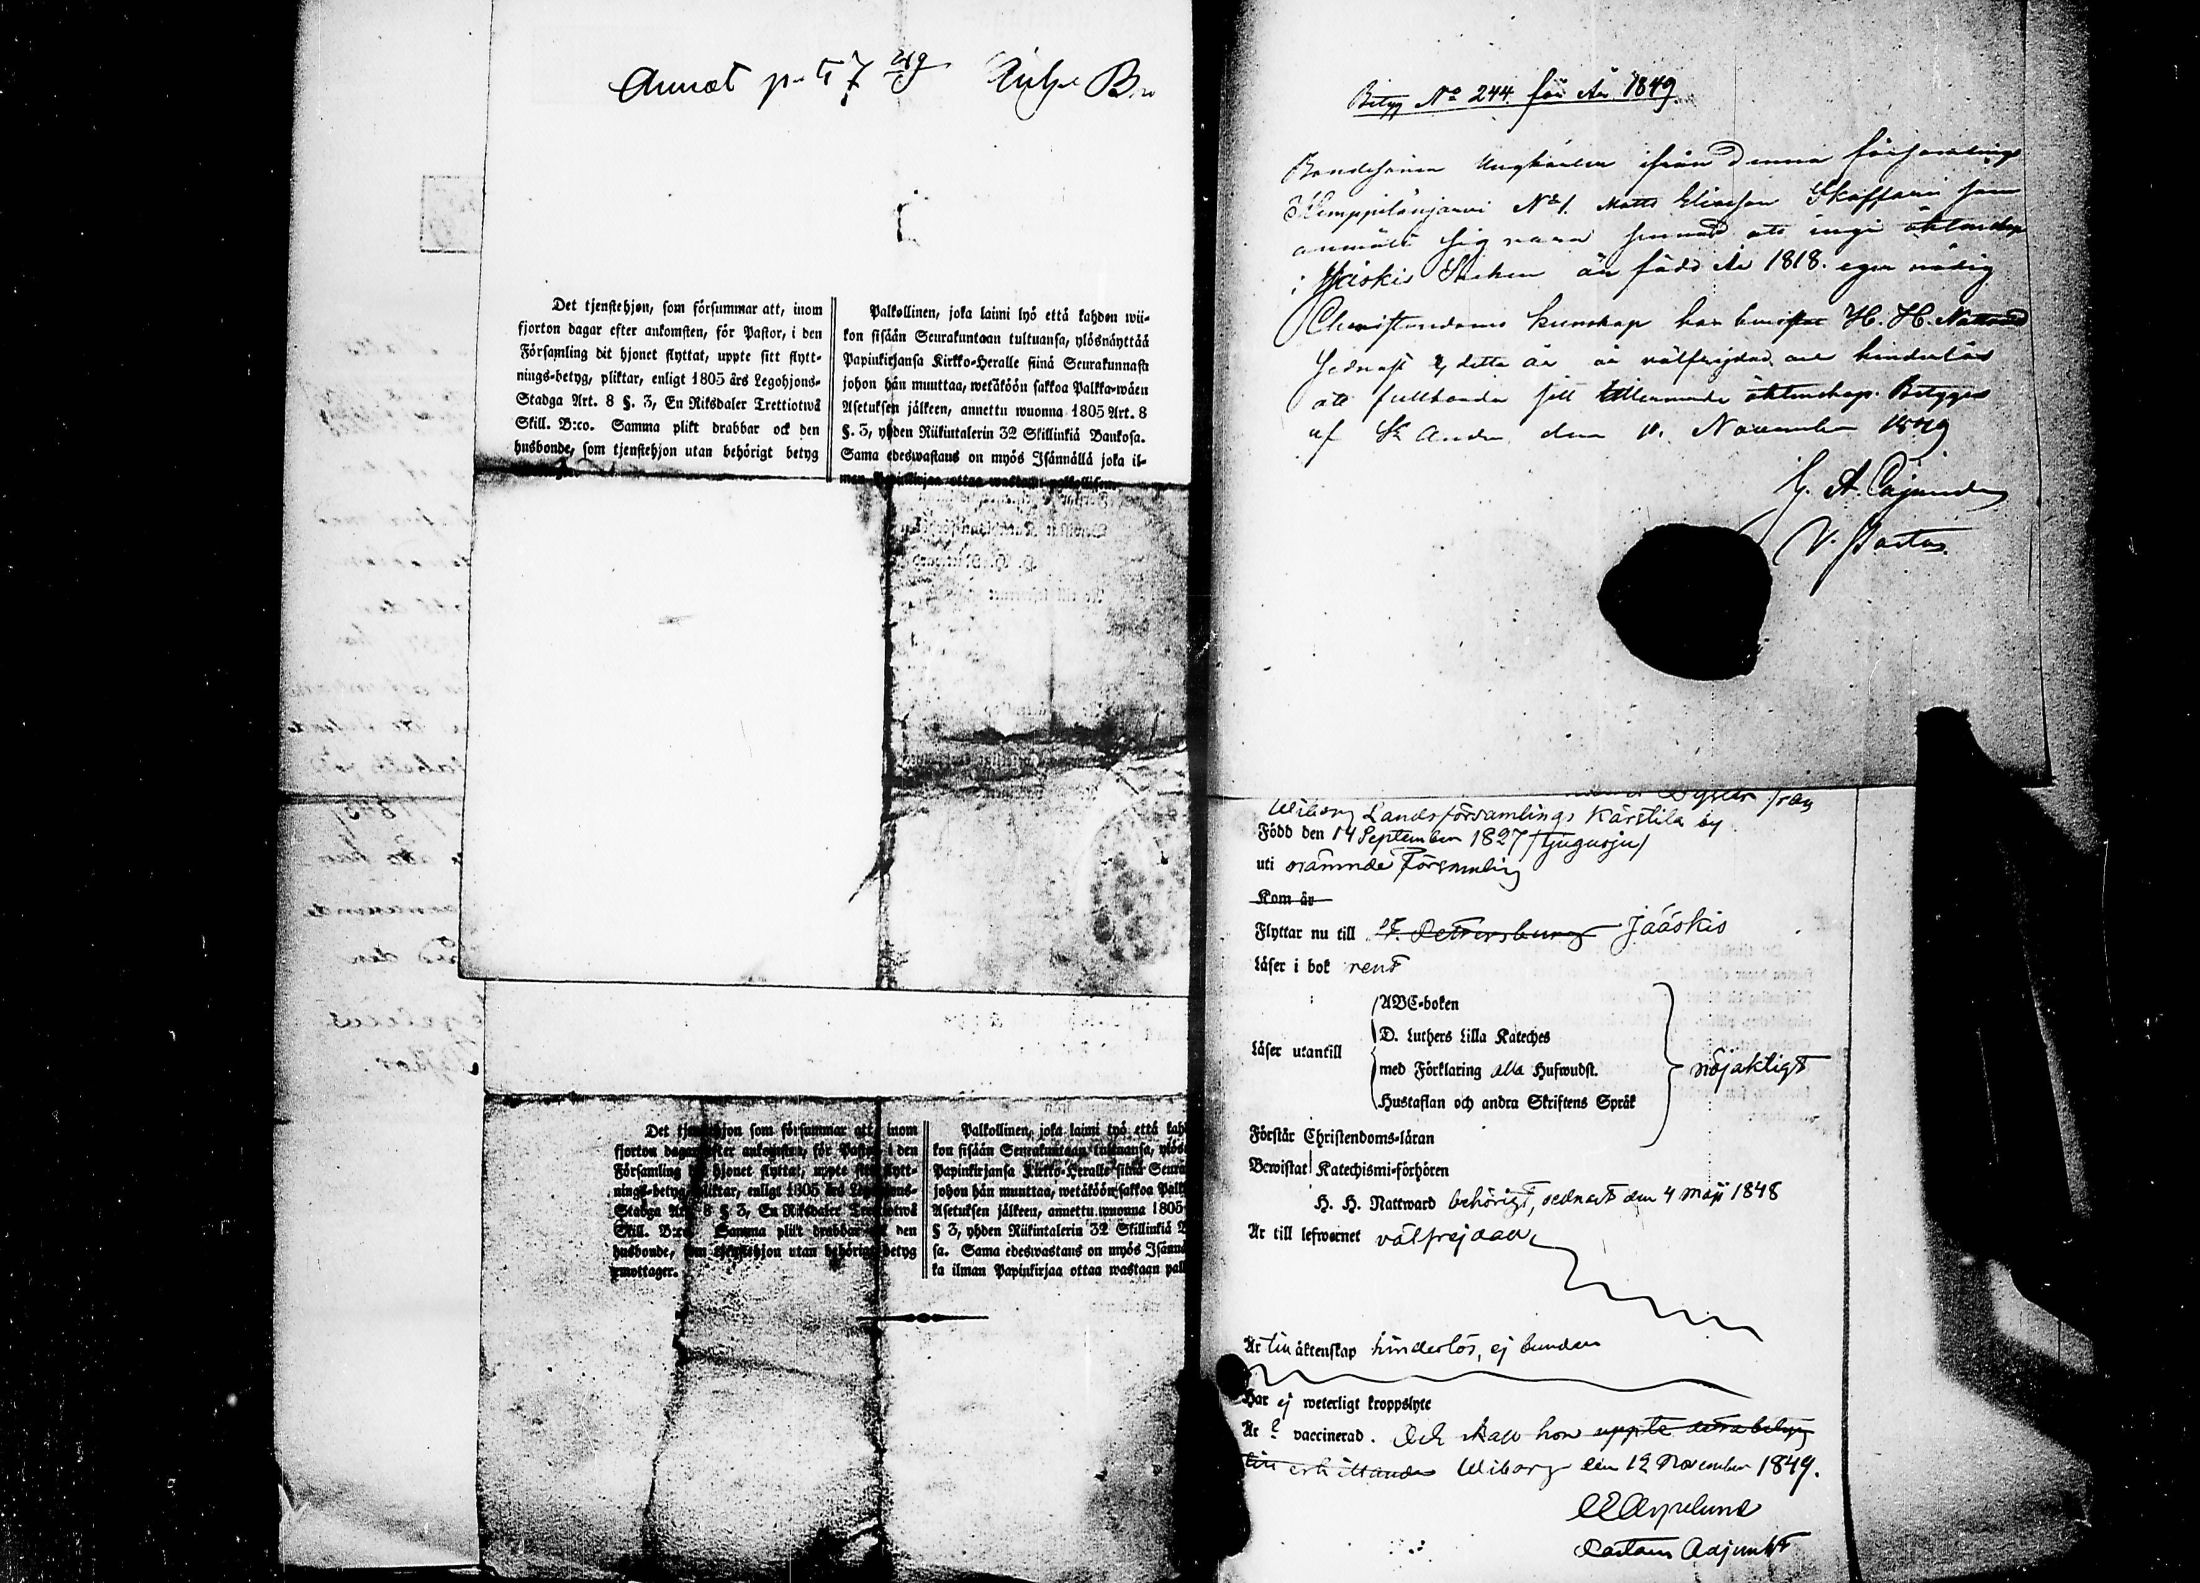 Annat
Det tjenstehjon, som försummar att, inom
fjorton dagar efter ankomsten, för Pastor, i den
Församling dit hjonet flyttat, uppte sitt flytt-
nings-betyg, pliktar, enligt 1805 års Legohjons-
Stadga Art. 8 §. 3, En Riksdaler Trettiotwå
Skill. B:co. Samma plikt drabbar ock den
husbonde, som tjenstehjon utan behörigt betyg
Palkollinen, joka laimi lyö että kahden wii-
kon sisään Seurakuntaan tultuansa, ylösnäyttää
Papinkirjansa Kirkko-Heralle siinä Seurakunnasta
johon hän muuttaa, wetäköön sakkoa Palkka-wäen
Asetuksen jälkeen, annettu wuonna 1805 Art. 8
§. 3, yhden Riikintalerin 32 Skillinkiä Bankosa.
Sama edeswastaus on myös Isännällä joka il-
man Papinkirjaa ottaa wastaan palkollisen.
Det tjenstehjon som försummar att, inom
fjorton dagar efter ankomsten, för Pastor, i den
Församling dit hjonet flyttat, uppte sitt flytt-
nings-betyg, pliktar, enligt 1805 års Legohjons-
Stadga Art. 8 § 3, En Riksdaler Trettiotwå
Skill. B:co. Samma plikt drabbar ock den
husbonde, som tjenstehjon utan behörigt betyg
emottager.
Palkollinen, joka laimi lyö että kah
kon sisään Seurakuntaan tultuansa, ylös
Papinkirjansa Kirkko-Heralle siinä Seura
johon hän muuttaa, wetäköön sakkoa Palk
Asetuksen jälkeen, annettu wuonna 1805
§ 3, yhden Riikintalerin 32 Skillinkiä B
sa. Sama edeswastaus on myös Isännä
ka ilman Papinkirjaa ottaa wastaan pal
Betyg No 244 för År 1849
Bondesonen Ungkarlen ifrån denna församlings
No 1. Matts Eliasson Skaffari som
anmält sig vara sinnad att ingå äktenskap
i Jääskis Socken är född År 1818. eger nödig
Christendoms kunskap har bevistat H. H. Nattvard
sednast detta år är välfrejdad och hinderlös
att fullborda sitt tillernade äktenskap. Betygas
af St Andree den 10. November 1849
G. A. Cajander
V. Pastor.
Wiborg Landsförsamlings Kärstilä by
Född den 14 September 1827 /tjugusju/
uti nämnde Församling
Kom år
Flyttar nu till St. Petersburg Jääskis
Läser i bok rent
Läser utantill
ABC-boken
D. Luthers Lilla Kateches
med Förklaring alla Hufwudst.
Hustaflan och andra Skriftens Språk
nöjaktigt
Förstår Christendoms-läran
Bewistat Katechismi-förhören
H. H. Nattward behörigt, sednast den 4 Maji 1848
Är till lefwernet välfrejdad
Är till äktenskap hinderlös, ej bunden
Har ej weterligt kroppslyte
Är vaccinerad. Och skall hon uppte detta betyg
till erhållande Wiborg den 12 November 1849.
Pastors Adjunkt